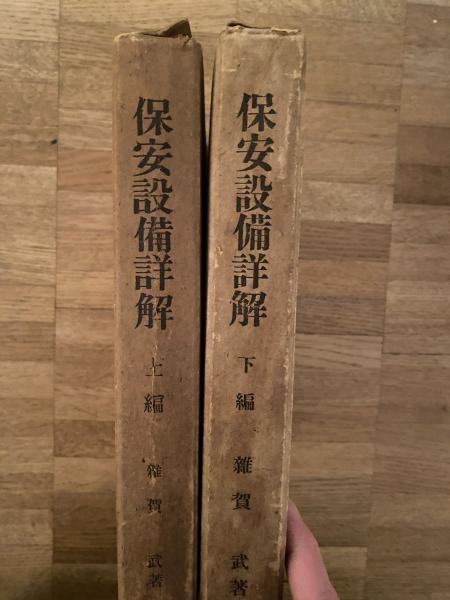 保安設備詳解
上編
雜賀 武著
保安設備詳解
下編
雜賀 武著